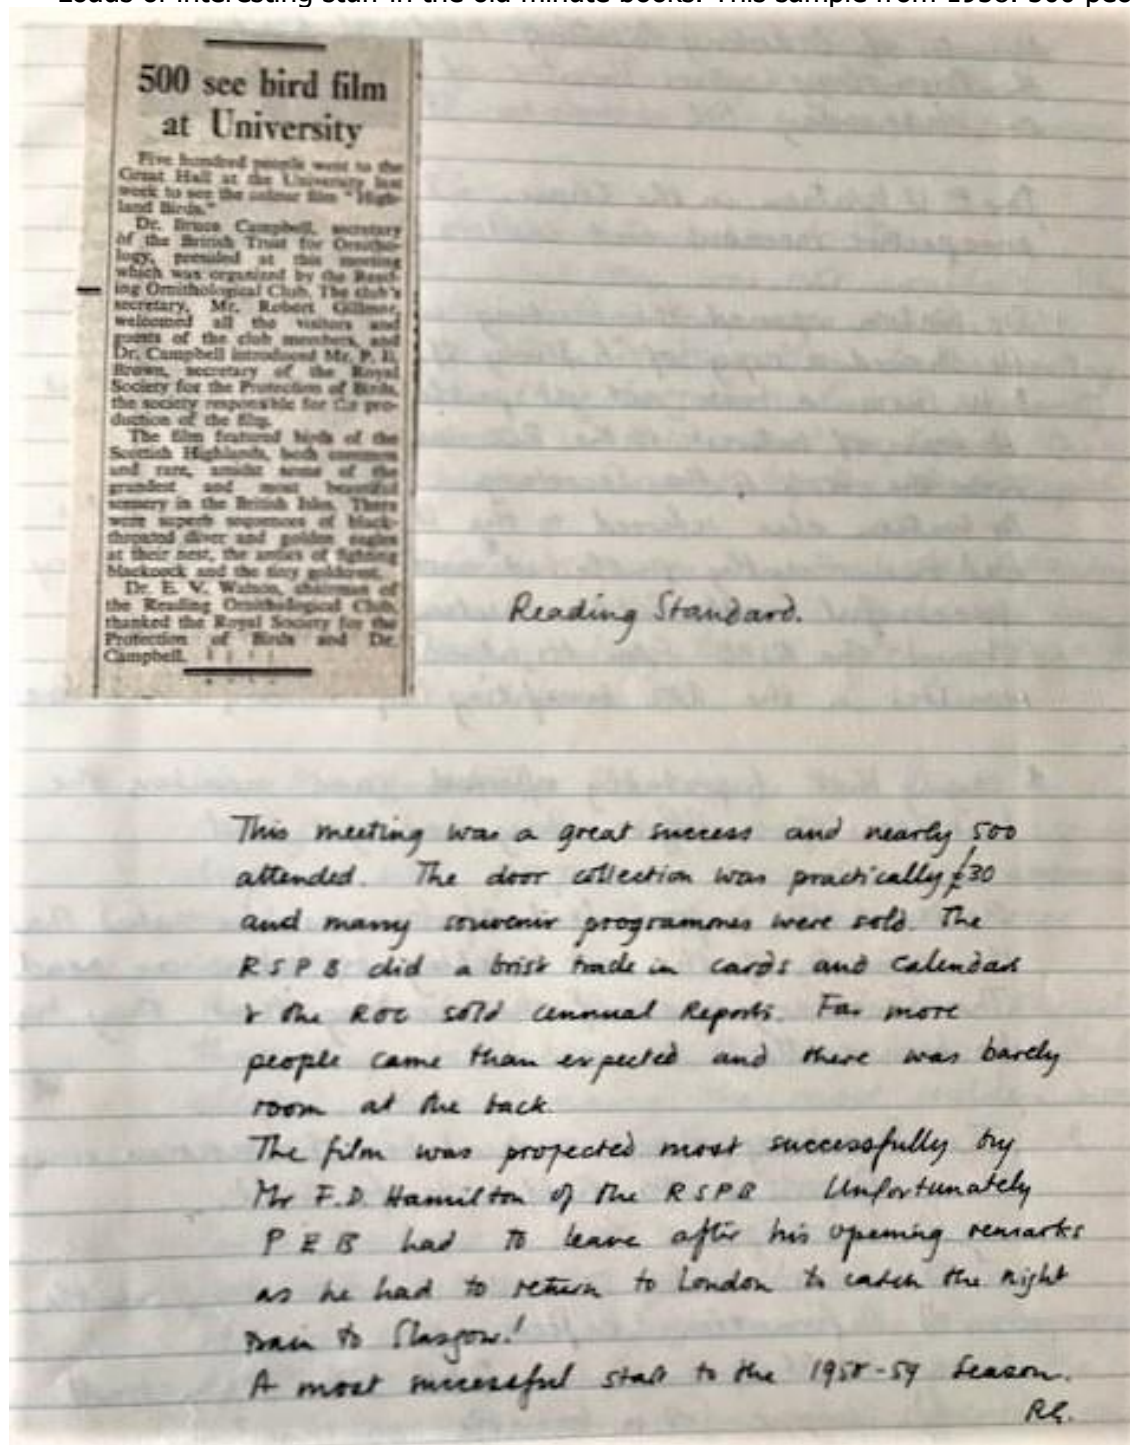 Loads of interesting stuff in the old minute books. This sample from 1958. 500 peo
500 see bird film
at University
Five hundred people went to the
Great Hall at the University last
week to see the colour film "High-
land Birds."
Dr. Bruce Campbell, secretary
of the British Trust for Ornitho-
logy, presided at this meeting
which was organized by the Read-
ing Ornithological Club. The club's
secretary, Mr. Robert Gillmor,
welcomed all the visitors and
guests of the club members, and
Dr. Campbell introduced Mr. P. E.
Brown, secretary of the Royal
Society for the Protection of Birds,
the society responsible for the pro-
duction of the film.
The film featured birds of the
Scottish Highlands, both common
and rare, amidst some of the
grandest and most beautiful
scenery in the British Isles. There
were superb sequences of black-
throated diver and golden eagles
at their nest, the antics of fighting
blackcock and the tiny goldcrest.
Dr. E. V. Watson, chairman of
the Reading Ornithological Club,
thanked the Royal Society for the
Protection of Birds and Dr.
Campbell.
Reading Standard.
This meeting was a great success and nearly 500
attended. The door collection was practically £30
and many souvenir programmes were sold. The
RSPB did a brisk trade in cards and calendars
& the ROC sold annual Reports. Far more
people came than expected and there was barely
room at the back.
The film was projected most successfully by
Mr F.D. Hamilton of the RSPB Unfortunately
PEB had to leave after his opening remarks
as he had to return to London to catch the night
train to Glasgow!
A most successful start to the 1958-59 Season.
RG.